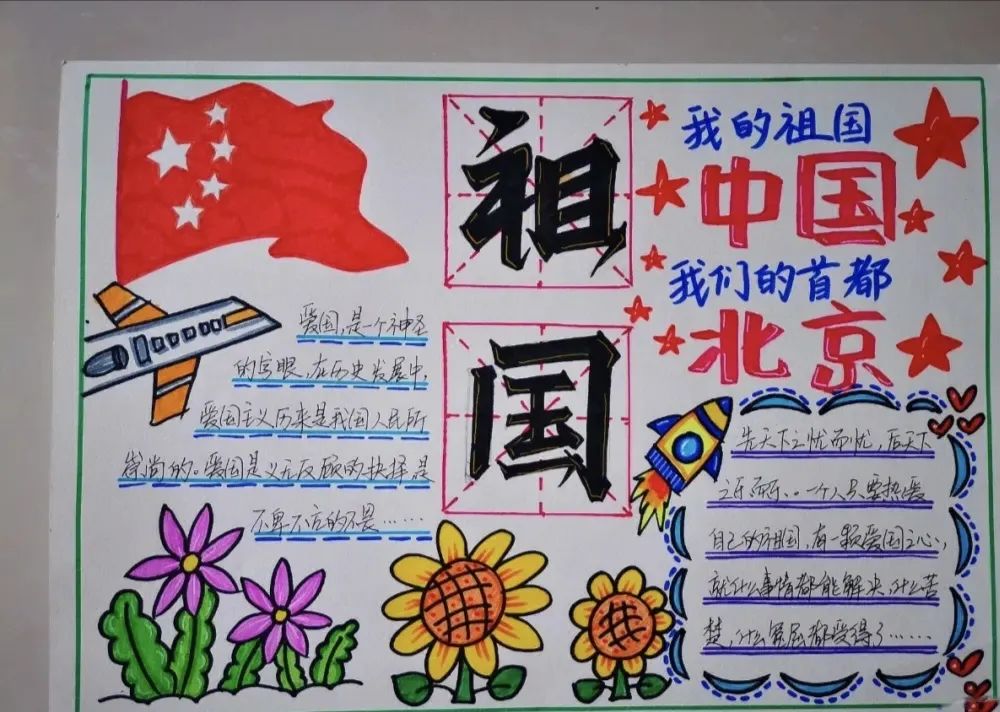 祖
国
我的祖国
中国
我们的首都
北京
爱国,是一个神圣
的字眼,在历史发展中,
爱国主义历来是我国人民所
崇尚的。爱国是义无反顾的抉择,是
不卑不亢的不畏……
先天下之忧而忧,后天下
之乐而乐。一个人只要热爱
自己的祖国,有一颗爱国之心,
就什么事情都能解决,什么苦
楚,什么冤屈都受得了……